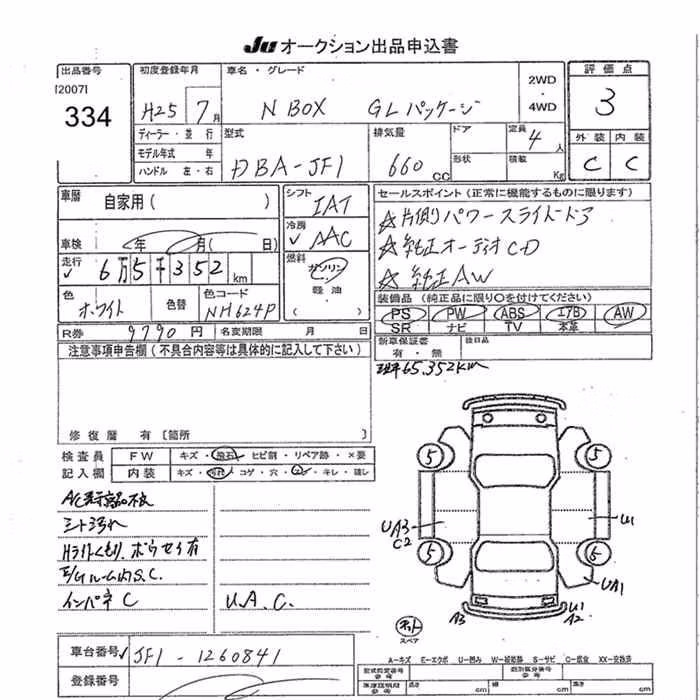 Ju オークション出品申込書
出品番号
[2007]
334
初度登録年月
H25 7月
ディーラー・並行
モデル年式 年
ハンドル 左・右
車名・グレード
N BOX GLパッケージ
2WD
・
4WD
評価点
3
外装 内装
C C
型式
DBA-JF1
排気量
660 CC
ドア
形状
定員
4人
積載 Kg
車歴
自家用( )
車検 年 月( 日)
走行
6万5千352km
色
ホワイト
色替
色コード
NH624P
シフト
IAT
冷房
AAC
燃料
ガソリン
軽油
( )
セールスポイント(正常に機能するものに限ります)
☆片側パワースライドドア
☆純正オーディオCD
☆純正AW
装備品(純正品に限り○を付けてください)
PS PW ABS エアB AW
SR ナビ TV 本革
R券 9790円 名変期限 月 日
新車保証書
有・無
後日品
65,352km
注意事項申告欄(不具合内容等は具体的に記入して下さい)
修復歴 有[箇所 ]
検査員
記入欄
FW キズ・飛石・ヒビ割・リペア跡・×要
内装 キズ・汚れ・コゲ・穴・・キレ・
シート汚れ
Hライトくもり、ボウセイ有
E/Gルーム内S.C.
インパネC
U.A.C.
5 5
UA3
C2
U1
5 5
UA1
A3
U1
A2
スペア
車台番号 JF1-1260841
登録番号
A-キズ E-エクボ U-凹み W-補修跡 S-サビ C-腐食 XX-交換済
型式指定番号
参考
類別区分番号
参考
参考
長さ cm 幅 cm 高さ cm